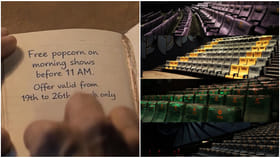 Free popcorn on
morning shows
before 11 AM.
Offer valid from
19th to 26th only